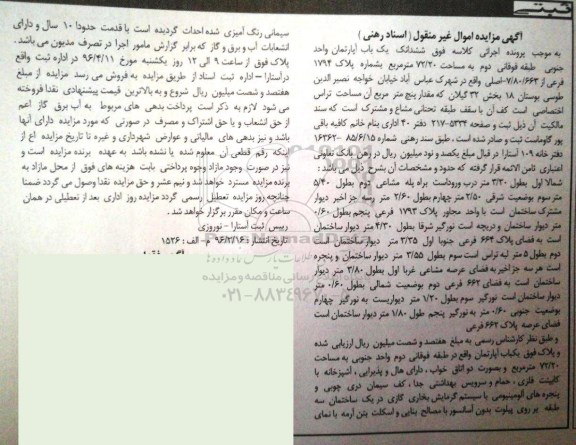 ثبتی
آگهی مزایده اموال غیر منقول ( اسناد رهنی )
به موجب پرونده اجرائی کلاسه فوق ششدانگ یک باب آپارتمان واحد
جنوبی طبقه فوقانی دوم به مساحت ۷۲/۲۰ مترمربع بشماره پلاک ۱۷۹۴
فرعی از ۷/۸۰/۶۶۳-اصلی واقع در شهرک عباس آباد خیابان خواجه نصیر الدین
طوسی بوستان ۱۸ بخش ۳۲ گیلان که مقدار پنج متر مربع آن مساحت تراس
اختصاصی است کف آن با سقف طبقه تحتانی مشاع و مشترک است که سند
مالکیت آن ذیل ثبت و صفحه ۵۳۳۴-۲۱۷ دفتر ۴۰ اداری بنام خانم کافیه باقی
پور گلوماست ثبت و صادر شده است ، طبق سند رهنی شماره ۸۵/۶/۱۵ - ۱۶۳۶۲
دفتر خانه ۱۰۹ آستارا در قبال مبلغ یکصد و نود میلیون ریال در رهن بانک تعاونی
اعتباری ثامن الائمه قرار گرفته که حدود و مشخصات آن بشرح ذیل می باشد :
شمالا اول بطول ۳/۳۰ متر درب وروداست براه پله مشاعی دوم بطول ۵/۴۰
متر سوم بوضعیت شرقی ۲/۵۰ متر چهارم بطول ۲/۶۰ متر سه جز اخیر دیوار
مشترک ساختمان است با واحد مجاور پلاک ۱۷۹۳ فرعی پنجم بطول ۰/۶۰
متر دیوار ساختمان و دریچه است نورگیر شرقا بطول ۴/۳۰ متر دیوار ساختمان
است به فضای پلاک ۶۶۴ فرعی جنوبا اول ۳/۳۵ متر دیوار ساختمان است
دوم بطول ۵ متر لبه تراس است سوم بطول ۲/۵۵ متر دیوار ساختمان و پنجره
است هر سه جز اخیر به فضای عرصه مشاعی غربا اول بطول ۳/۸۰ متر دیوار
ساختمان است به فضای ۶۶۲ فرعی دوم بوضعیت شمالی بطول ۰/۶۰ متر
دیوار ساختمان است نورگیر سوم بطول ۱/۲۰ متر دیواریست به نورگیر چهارم
بوضعیت جنوبی ۰/۶۰ متر به نورگیر پنجم طول ۱/۸۰ متر دیوار ساختمان است
فضای عرصه پلاک ۶۶۲ فرعی
و طبق نظر کارشناس رسمی به مبلغ هفتصد و شصت میلیون ریال ارزیابی شده
و پلاک فوق یکباب آپارتمان واقع در طبقه فوقانی دوم واحد جنوبی به مساحت
۷۲/۲۰ مترمربع و بصورت دو اتاق خواب ، دارای هال و پذیرایی ، آشپزخانه با
کابینت فلزی ، حمام و سرویس بهداشتی جدا ، کف سیمان دری چوبی و
پنجره های آلومینیومی با سیستم گرمایش بخاری گازی در یک ساختمان سه
طبقه بر روی پیلوت بدون آسانسور با مصالح بنایی و اسکلت بتن آرمه با نمای
سیمانی رنگ آمیزی شده احداث گردیده است با قدمت حدودا ۱۰ سال و دارای
انشعابات آب و برق و گاز که برابر گزارش مامور اجرا در تصرف مدیون می باشد .
پلاک فوق از ساعت ۹ الی ۱۲ روز یکشنبه مورخ ۹۶/۴/۱۱ در اداره ثبت واقع
درآستارا – اداره ثبت اسناد از طریق مزایده به فروش می رسد مزایده از مبلغ
هفتصد و شصت میلیون ریال شروع و به بالاترین قیمت پیشنهادی نقدا فروخته
می شود لازم به ذکر است پرداخت بدهی های مربوط به آب برق گاز اعم
از حق انشعاب و یا حق اشتراک و مصرف در صورتی که مورد مزایده دارای آنها
باشد و نیز بدهی های مالیاتی و عوارض شهرداری و غیره تا تاریخ مزایده اع از
اینکه رقم قطعی آن معلوم شده یا نشده باشد به عهده برنده مزایده است و
نیز در صورت وجود مازاد وجوه پرداختی بابت هزینه های فوق از محل مازاد به
برنده مزایده مسترد خواهد شد و نیم عشر و حق مزایده نقدا وصول می گردد ضمنا
چنانچه روز مزایده تعطیل رسمی گردد مزایده روز اداری بعد از تعطیلی در همان
ساعت و مکان مقرر برگزار خواهد شد .
رییس ثبت آستارا - نوروزی
تاریخ انتشار : ۹۶/۳/۱۶ م - الف : ۱۵۳۶
پایگاه اطلاع رسانی مناقصه و مزایده
۰۲۱-۸۸۳۴۹۶۷۰